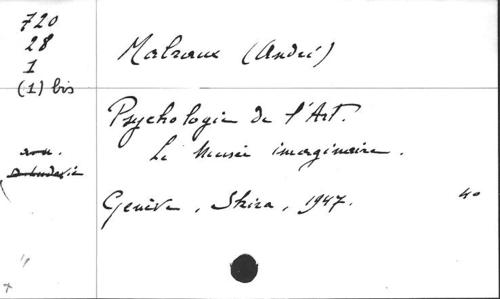 720
28
1
(1) bis
Malraux (André)
Psychologie de l'Art.
Le Musée imaginaire.
Genève, Skira, 1947.
40